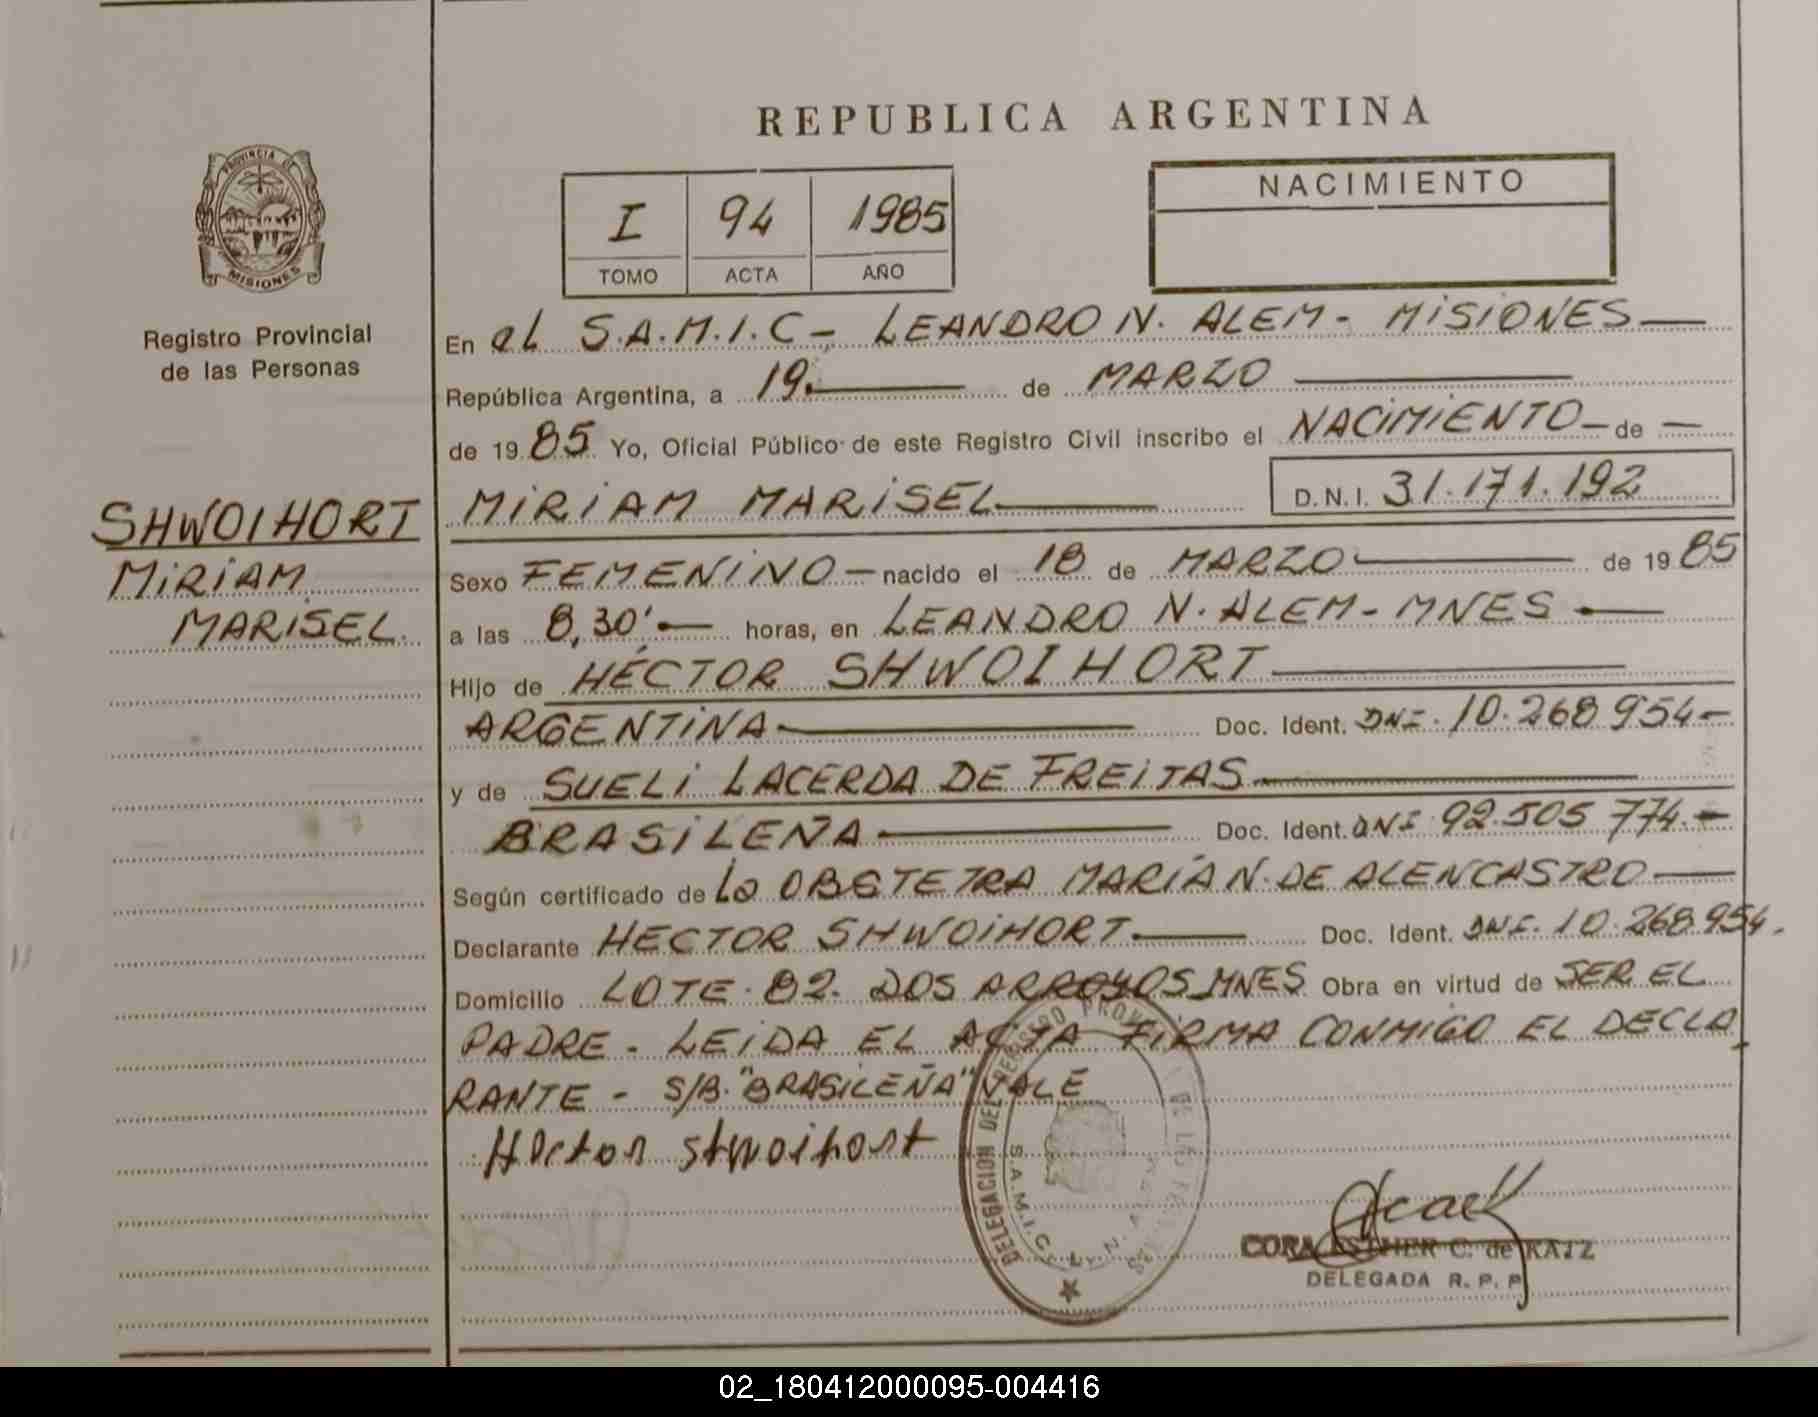 REPUBLICA ARGENTINA
PROVINCIA DE
MISIONES
Registro Provincial
de las Personas
I 94 1985
TOMO ACTA AÑO
NACIMIENTO
En el S.A.M.I.C - LEANDRO N. ALEM - MISIONES
República Argentina, a 19. de MARZO
de 1985 Yo, Oficial Público de este Registro Civil inscribo el NACIMIENTO - de
MIRIAM MARISEL D.N.I. 31.171.192
SHWOIHORT
MIRIAM
MARISEL.
Sexo FEMENINO - nacido el 18 de MARZO de 1985
a las 8,30' horas, en LEANDRO N. ALEM - MNES
Hijo de HÉCTOR SHWOIHORT
ARGENTINA Doc. Ident. DNI. 10.268.954-
y de SUELI LACERDA DE FREITAS
BRASILEÑA Doc. Ident. DNI 92.505.774.-
Según certificado de La OBSTETRA MARÍA N. DE ALENCASTRO
Declarante HECTOR SHWOIHORT. Doc. Ident. DNI. 10.268.954.
Domicilio LOTE. 82. DOS ARROYOS MNES Obra en virtud de SER EL
PADRE - LEIDA EL ACTA FIRMA CONMIGO EL DECLA
RANTE - S/B. "BRASILEÑA" VALE
Hector shwoihort
DELEGACION DEL REGISTRO PROVINCIAL DE LAS
S.A.M.I.C. L. N. ALEM
CORA ESTHER C. de KATZ
DELEGADA R. P. P.
02_180412000095-004416